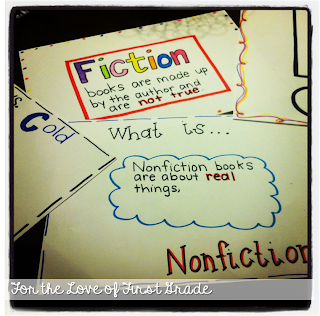 Fiction
books are made up
by the author and
are not true
Cold
What is...
Nonfiction books
are about real
things.
Nonfiction
For the Love of First Grade